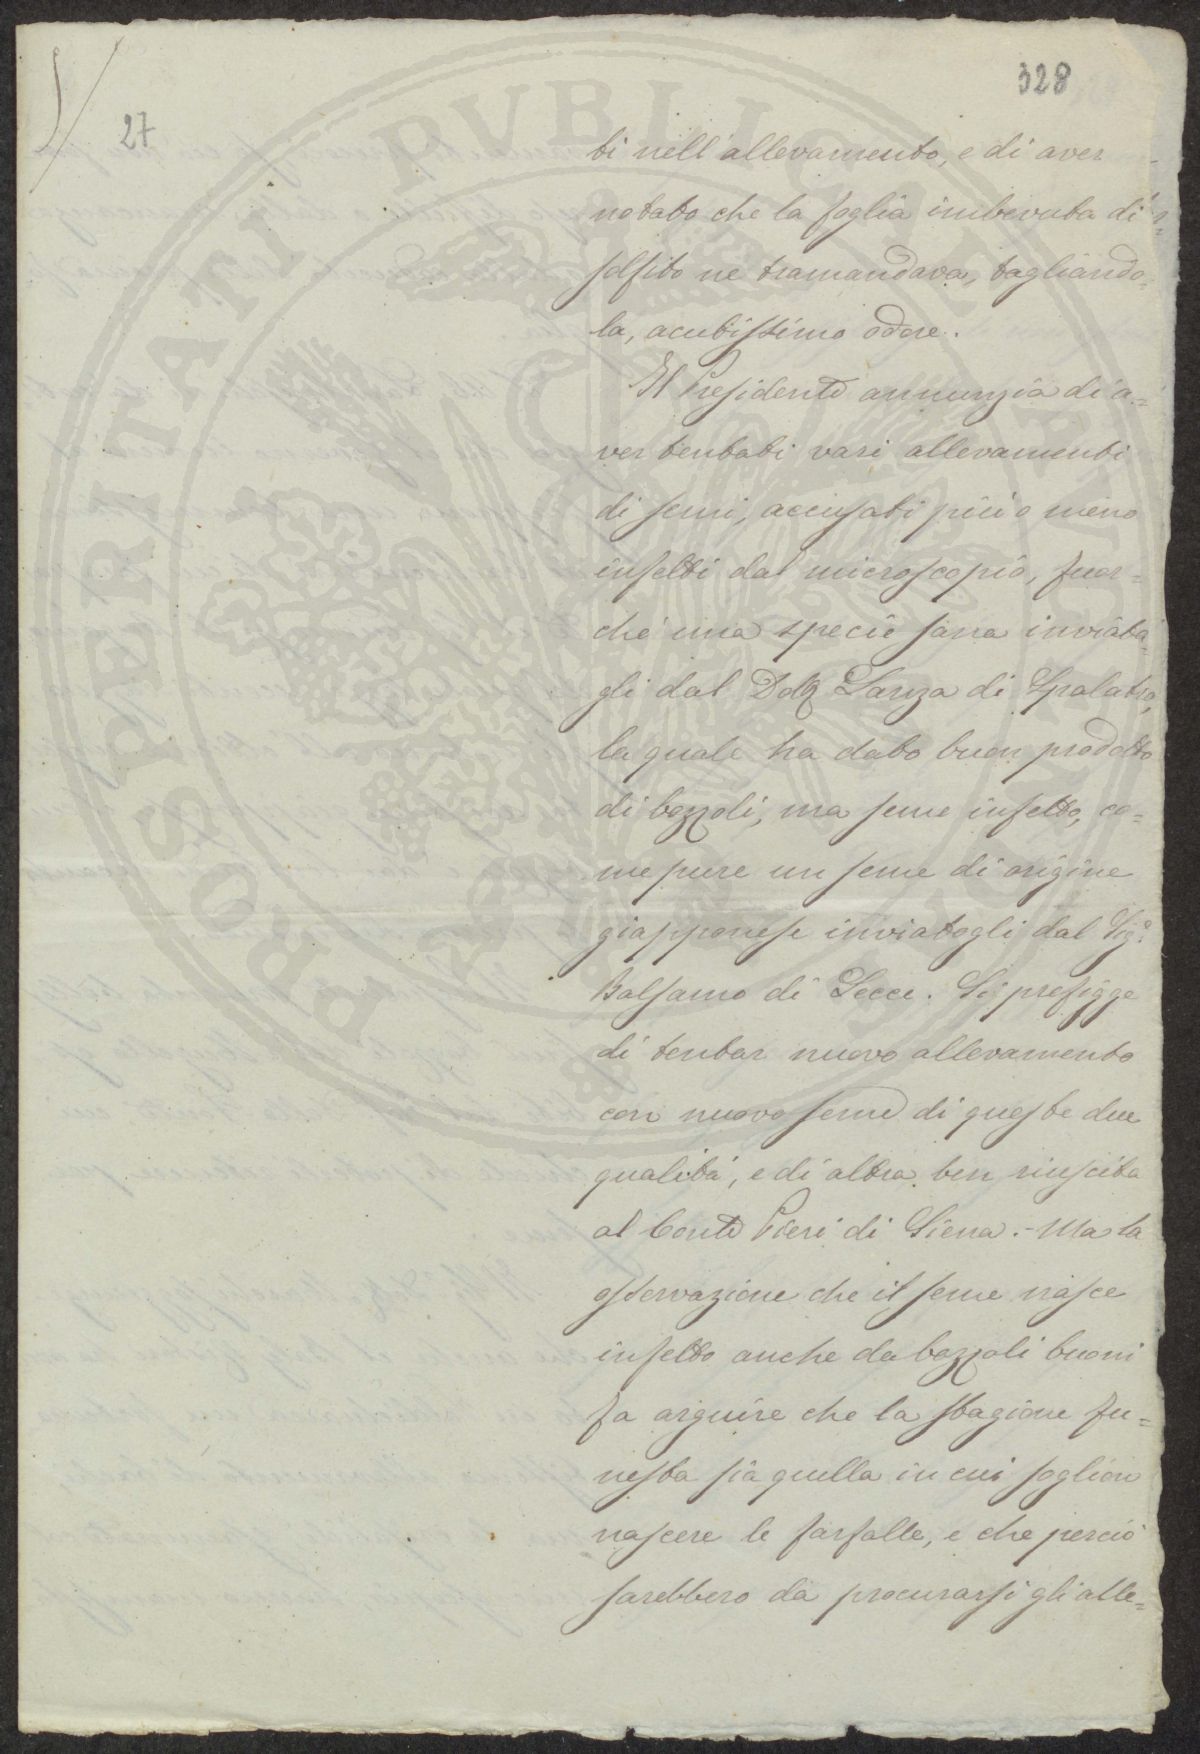 328
27
ti nell'allevamento, e di aver
notato che la foglia imbevuta di
solfito ne tramandava, tagliando-
la, acutissimo odore.
Il Presidente annunzia di a-
ver tentati vari allevamenti
di semi, accusati più o meno
infetti dal microscopio, fuor-
chè una specie sana inviata-
gli dal Dott. Lanza di Spalatro,
la quale ha dato buon prodotto
di bozzoli, ma seme infetto, co-
me pure un seme di origine
giapponese inviatogli dal Sig.
Balsamo di Lecce. Si prefigge
di tentar nuovo allevamento
con nuovo seme di queste due
qualità, e di altra ben riuscita
al Conte Pieri di Siena. - Ma la
osservazione che il seme nasce
infetto anche da bozzoli buoni
fa arguire che la stagione fu-
nesta sia quella in cui soglion
nascere le farfalle, e che perciò
sarebbero da procurarsi gli alle-
PROSPERITATI PVBLICAE